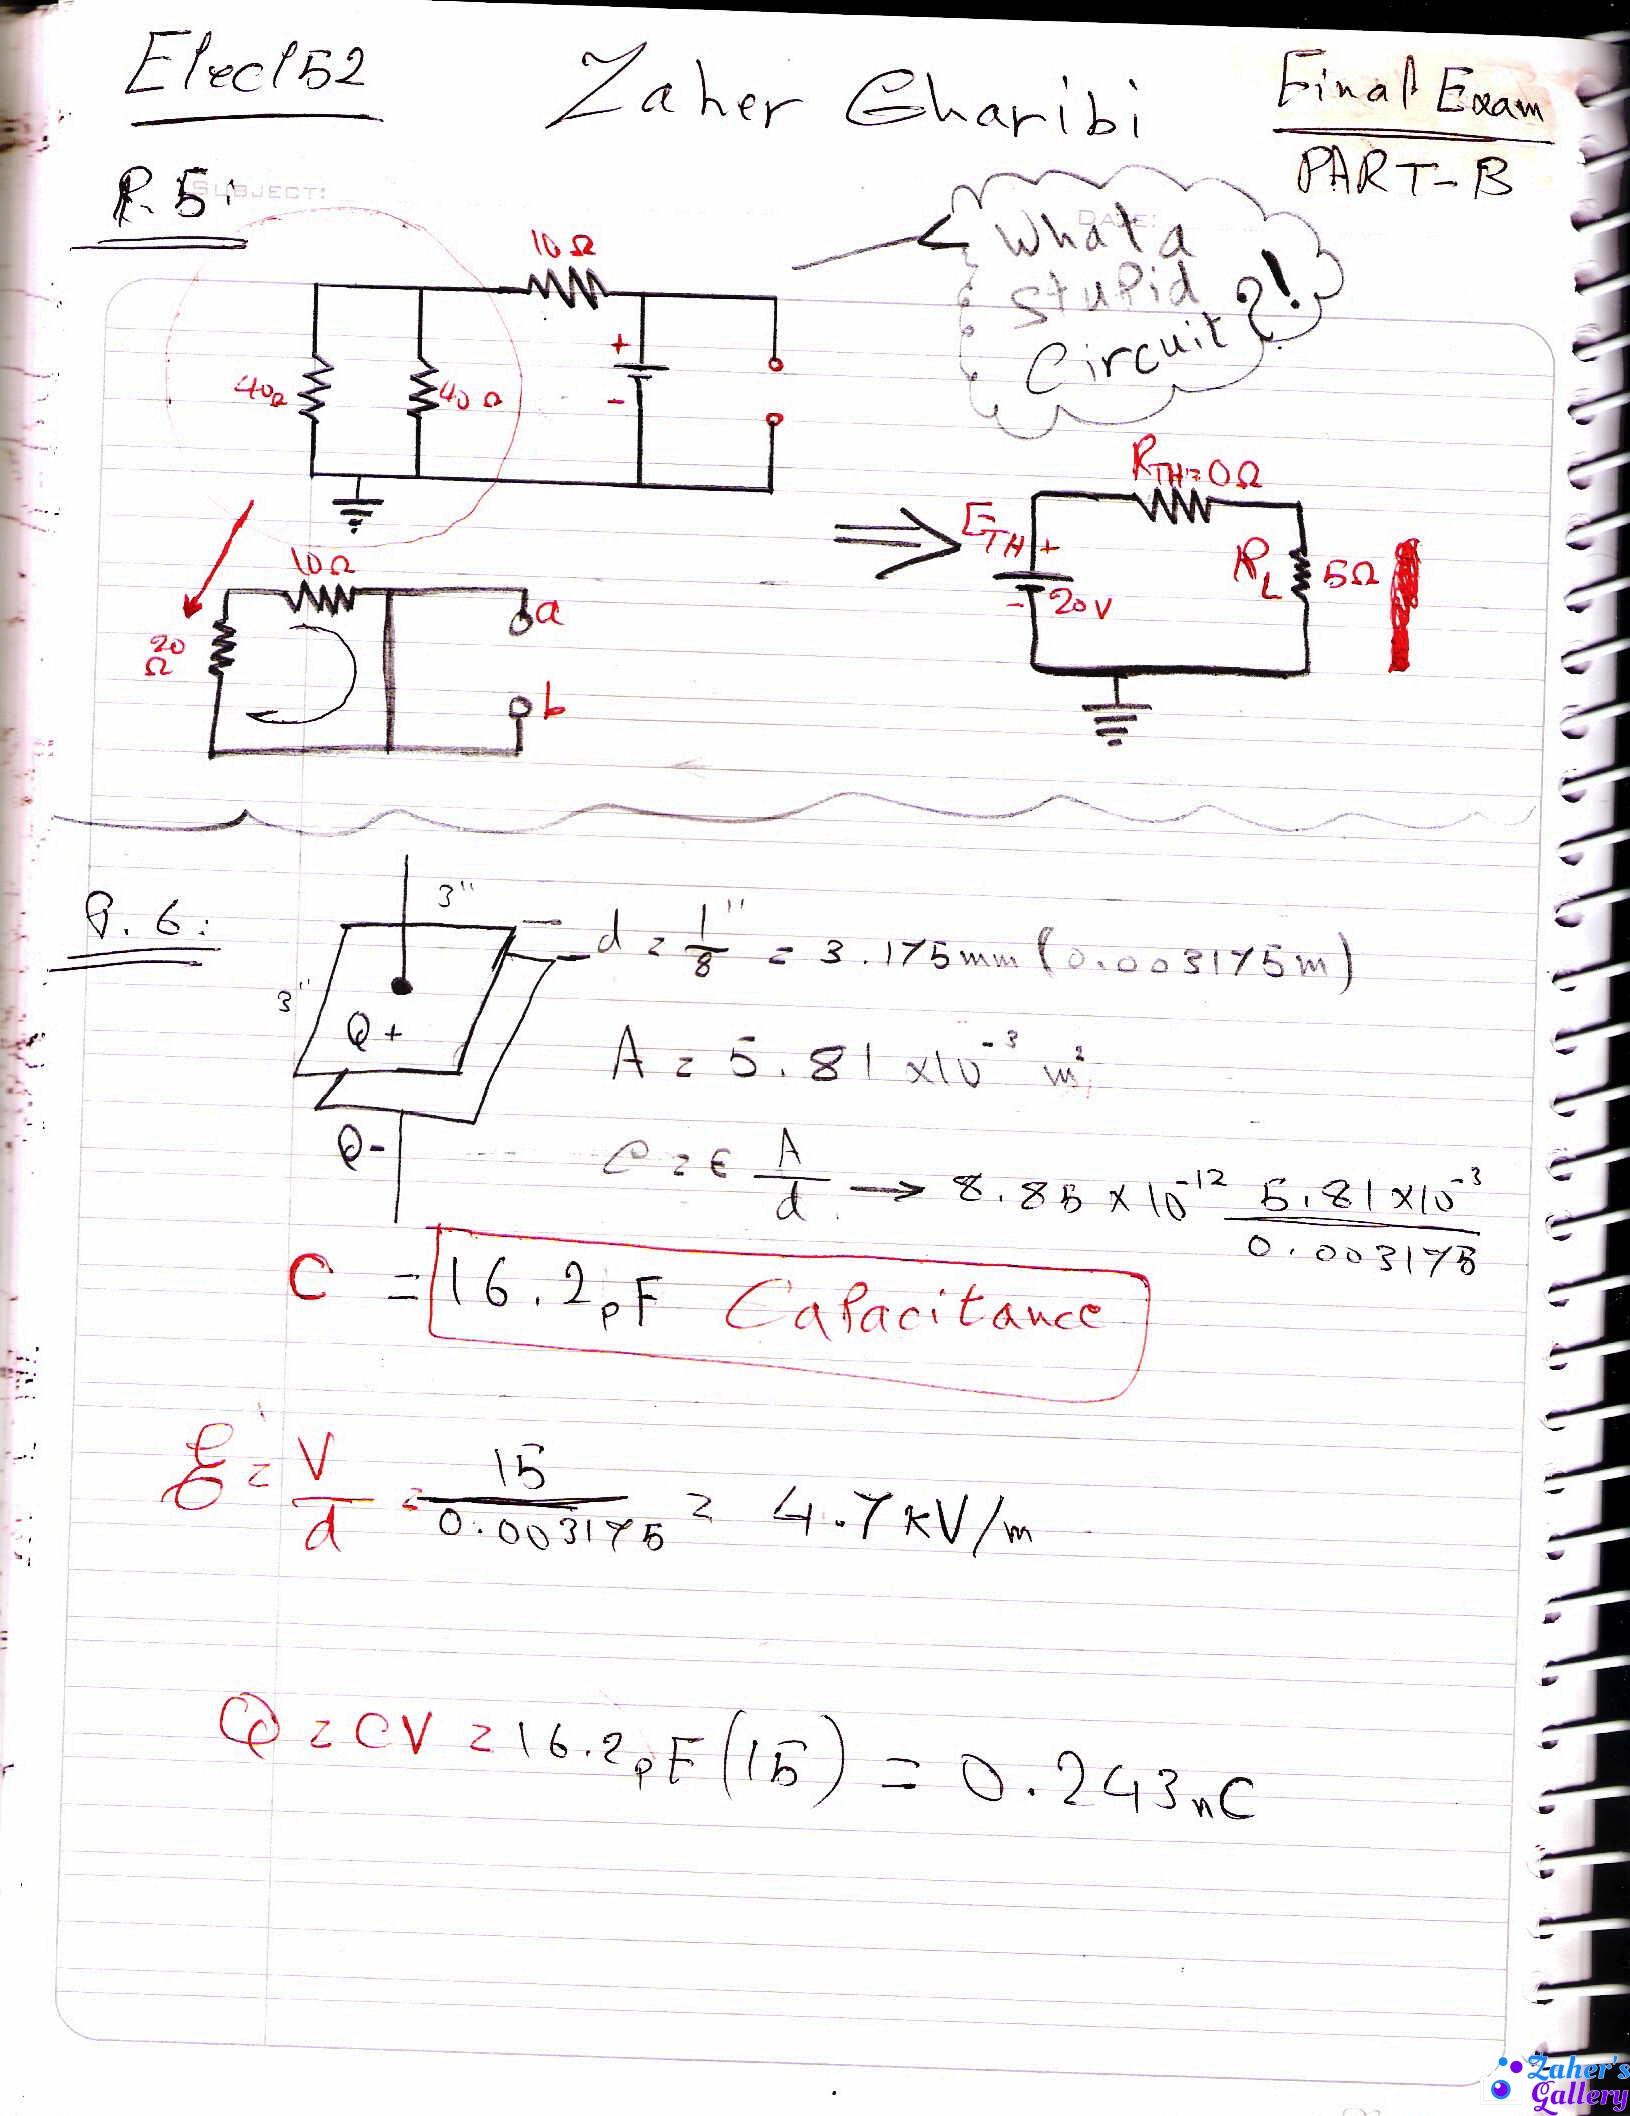 Elec152 Zaher Gharibi Final Exam
PART-B
P.5: SUBJECT: DATE:
What a
stupid
Circuit?!
10Ω
40Ω 40Ω
+
-
R_TH=0Ω
E_TH +
- 20V
R_L 5Ω
10Ω
20
Ω
a
b
P.6:
3"
3"
Q+
Q-
d = 1/8" = 3.175mm (0.003175m)
A = 5.81 x10⁻³ m²
C = ε A/d → 8.85 x 10⁻¹² 5.81x10⁻³/0.003175
C = 16.2pF Capacitance
ℰ = V/d = 15/0.003175 = 4.7kV/m
Q = CV = 16.2pF(15) = 0.243nC
Zaher's
Gallery